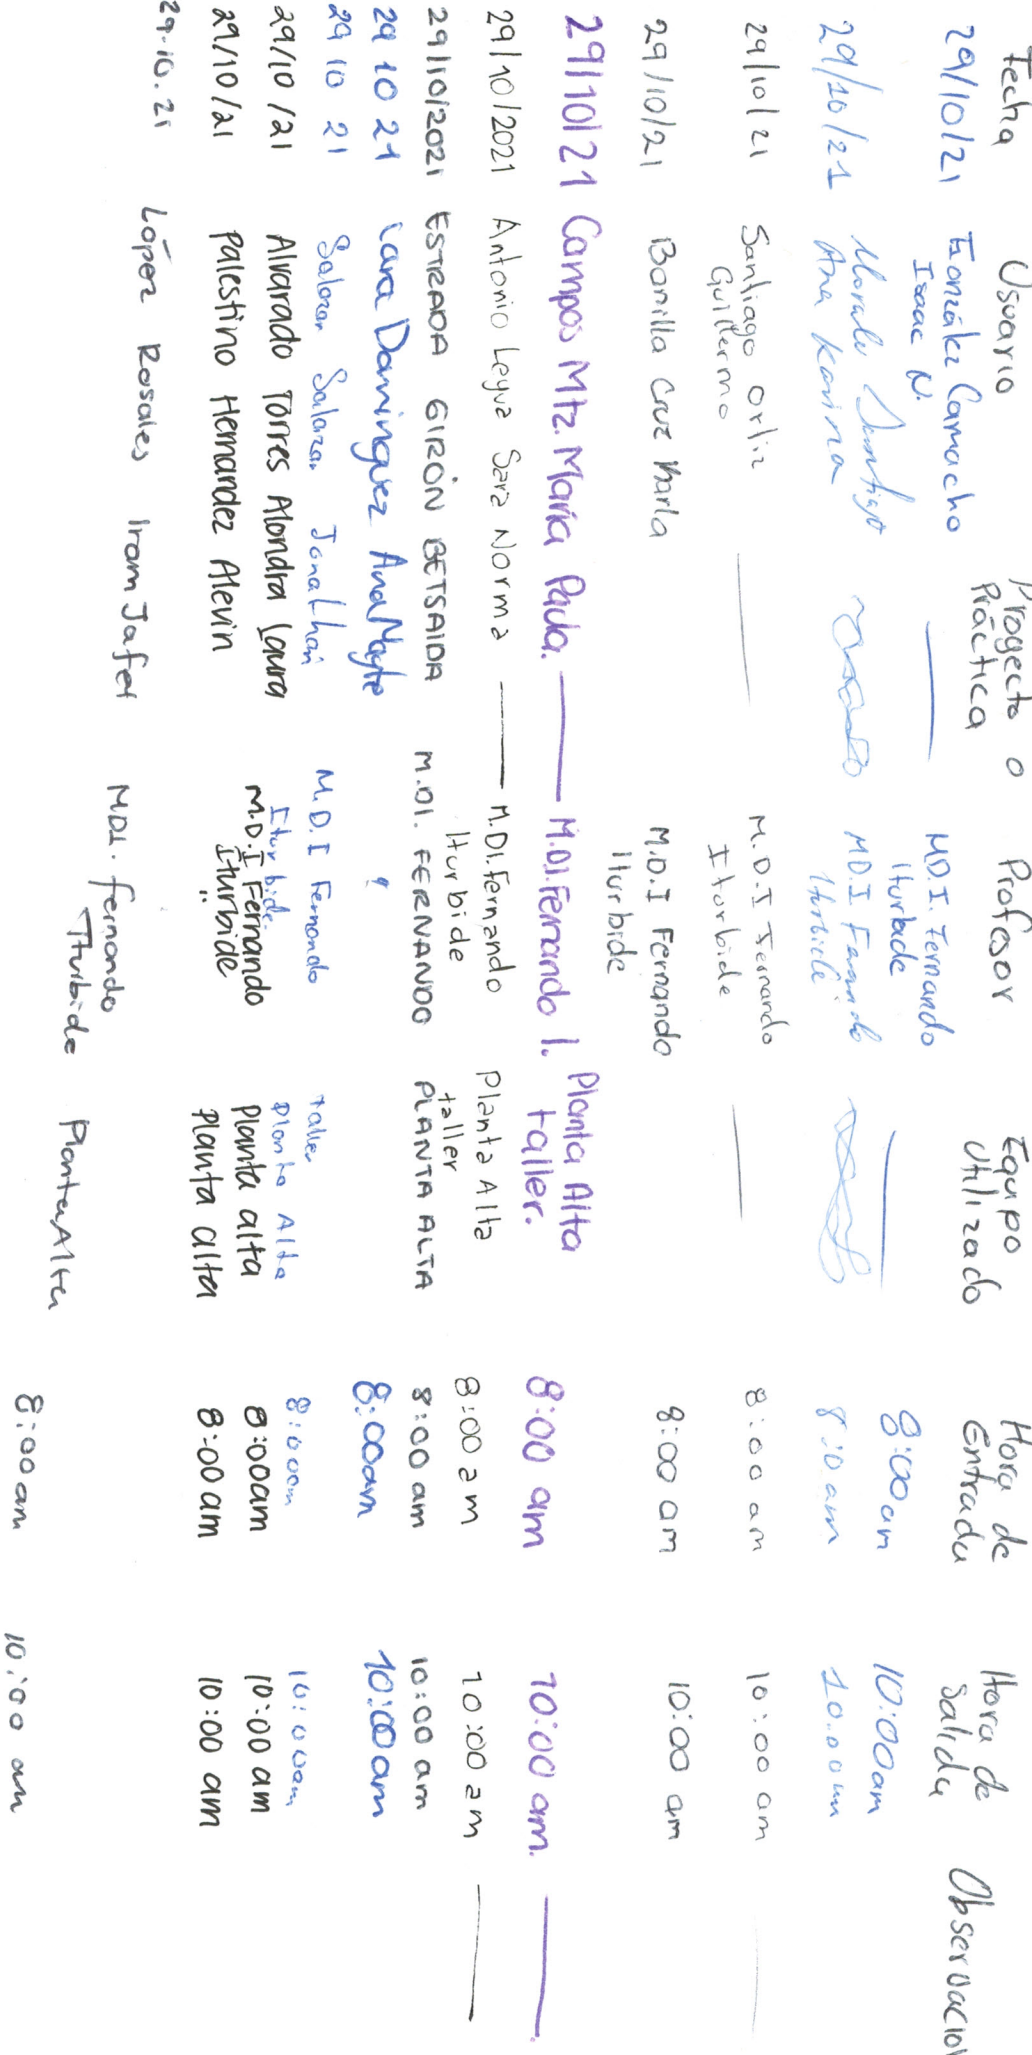 Fecha Usuario Proyecto o Práctica Profesor Equipo Utilizado Hora de Entrada Hora de Salida Observacion
29/10/21 González Camacho Isaac N. — MD.I. Fernando Iturbide — 8:00am 10:00am
29/10/21 Morales Santiago Ana Karina MD.I Fernando Iturbide 8:10am 10:00am
29/10/21 Santiago Ortiz Guillermo — M.D.I Fernando Iturbide — 8:00 am 10:00 am —
29/10/21 Bonilla Cruz Karla M.D.I Fernando Iturbide 8:00 am 10:00 am
29/10/21 Campos Mtz. María Paula. — M.DI. Fernando I. Planta Alta taller. 8:00 am 10:00 am. —
29/10/2021 Antonio Leyva Sara Norma — M.DI. Fernando Iturbide Planta Alta taller 8:00 am 10:00 am —
29/10/2021 ESTRADA GIRÓN BETSAIDA M.DI. FERNANDO PLANTA ALTA 8:00 am 10:00 am
29 10 21 Lara Dominguez Ana Mayte 8:00am 10:00am
29 10 21 Salazar Salazar Jonathan M.D.I Fernando Iturbide. taller Planta Alta 8:00am 10:00am
29/10/21 Alvarado Torres Alondra Laura M.D.I Fernando Iturbide Planta alta 8:00am 10:00 am
29/10/21 Palestino Hernandez Alevin " Planta alta 8:00 am 10:00 am
29.10.21 López Rosales Iram Jafet MDI. fernando Iturbide Planta Alta 8:00 am 10:00 am